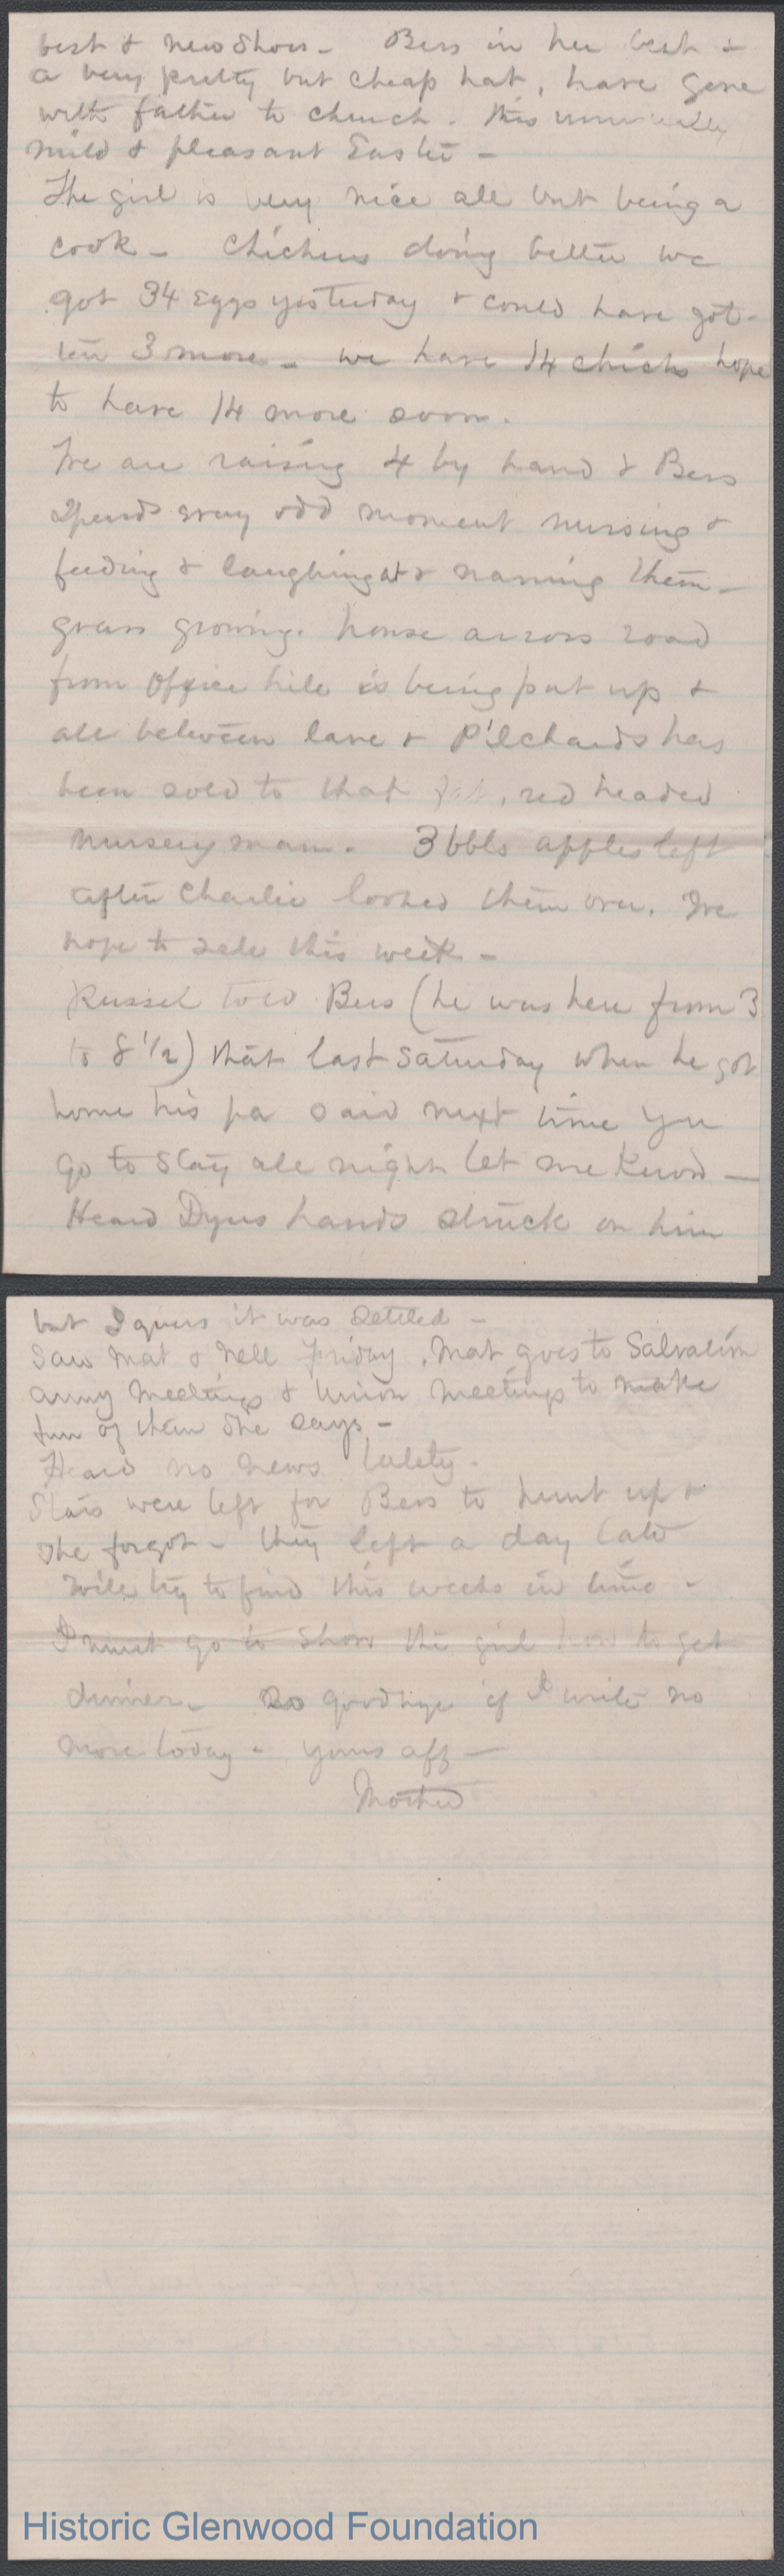 best & new shoes - Bess in her best &
a very pretty but cheap hat, have gone
with father to church. this unusually
mild & pleasant Easter -
The girl is very nice all but being a
cook - Chickens doing better we
got 34 eggs yesterday & could have got-
ten 3 more - we have 14 chicks hope
to have 14 more soon.
We are raising 4 by hand & Bess
spends every odd moment nursing &
feeding & laughing at & naming them -
grass growing. house across road
from Office hill is being put up &
all between lane & Pilchards has
been sold to that fat, red headed
nursery man. 3 bbls apples left
after Charlie looked them over. We
hope to sell this week -
Russel told Bess (he was here from 3
to 8 1/2) that last Saturday when he got
home his pa said next time you
go to stay all night let me know -
Heard Dyers hands struck on him
but I guess it was settled -
Saw Mat & Nell Friday, Mat goes to Salvation
army meetings & Union meetings to make
fun of them she says -
Heard no news lately.
Stars were left for Bess to hunt up &
she forgot - they left a day late
Will try to find this weeks in time -
I must go to show the girl how to get
dinner - So goodbye if I write no
more today - yours aff -
Mother
Historic Glenwood Foundation